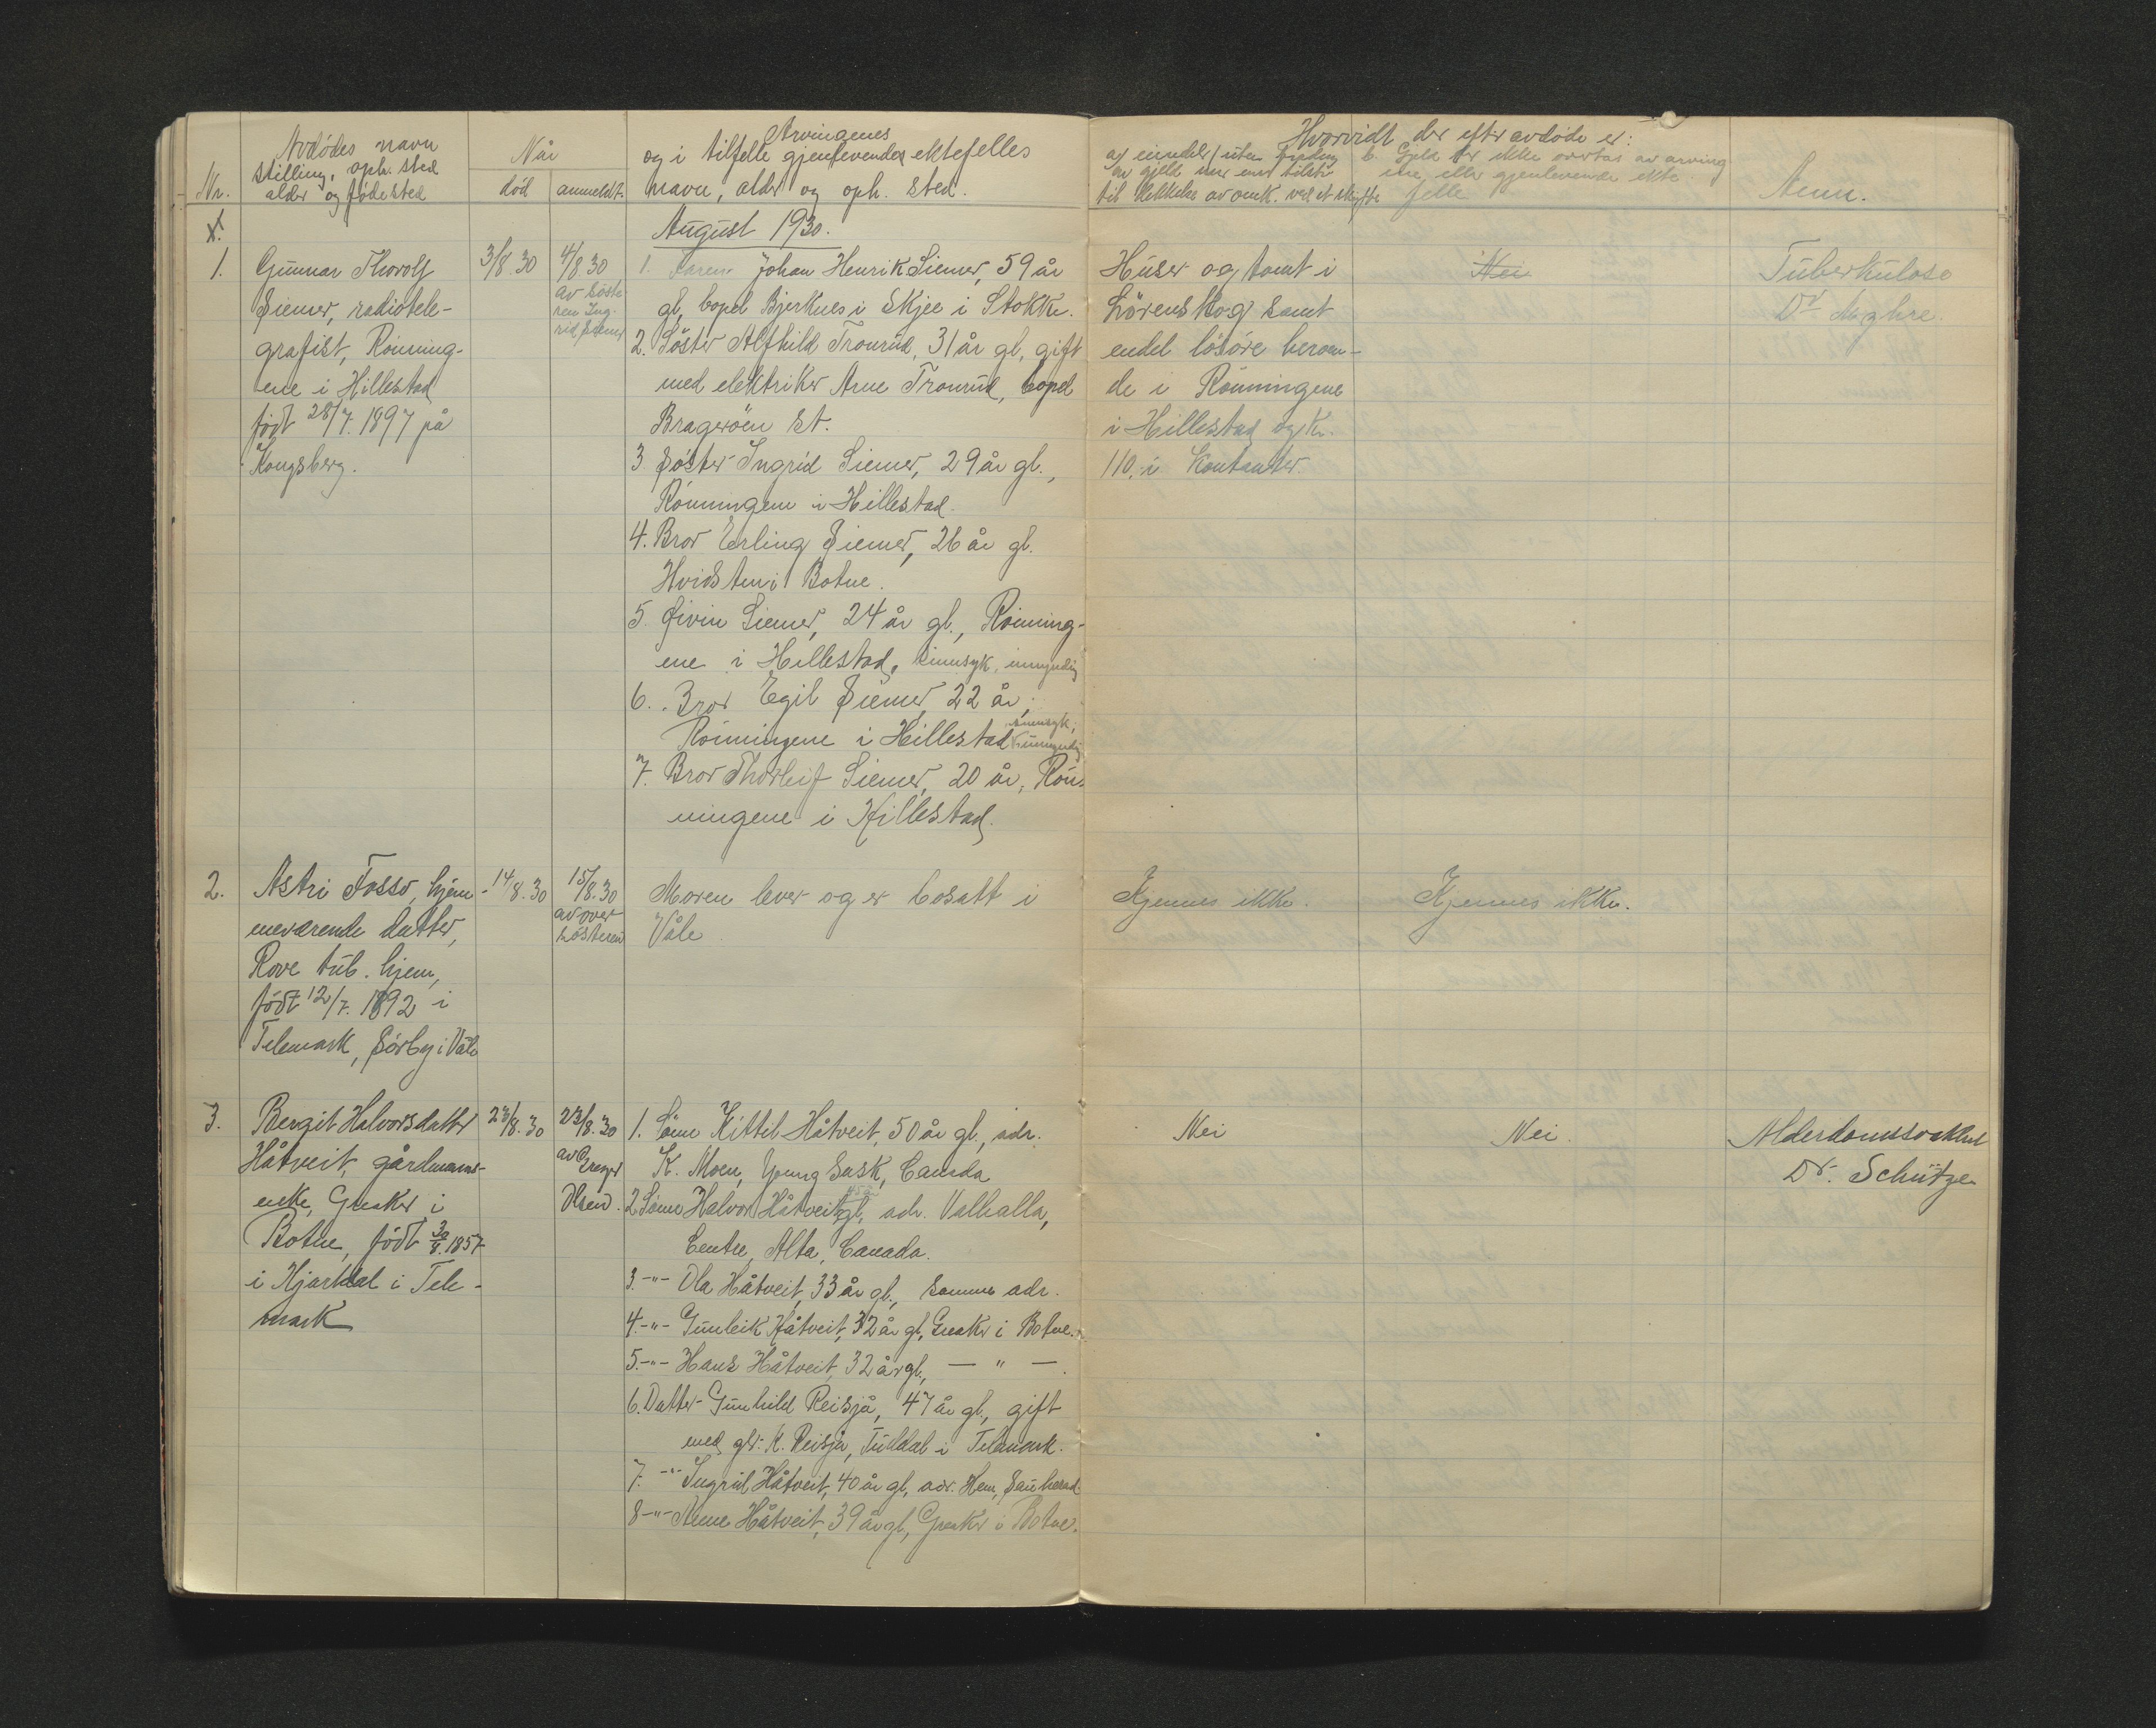 Avdödes navn
stilling, oph. sted
alder og födested
Nr.
Når
död
anmeldt.
Arvingenes
og i tilfelle gjenlevendes ektefelles
navn, alder og oph. sted.
Hvorvidt der efter avdöde er:
a) eiendeler uten
av gjeld
b. Gjeld der ikke overtas av arving
ene eller gjenlevende ekte
felle
Anm.
August 1930.
1.
Gunnar Thorolf
Siemer, radiotele-
grafist, Rönning-
ene i Hillestad
födt 28/7. 1897 på
Kongsberg.
3/8.30
4/8.30
av söste
ren Ing-
rid Siemer
1. Faren Johan Henrik Siemer, 59 år
gl, bopel Bjerknes i Skjee i Stokke.
2. Söster Alfhild Tronrud, 31 år gl, gift
med elektriker Arne Tronrud, bopel
Brageröen st.
3. Söster Ingrid Siemer, 29 år gl.,
Rönningen i Hillestad.
4. Bror Erling Siemer, 26 år gl.
Hvidsten i Botne.
5. Eivin Siemer, 24 år gl., Rönning-
ene i Hillestad, sinnsyk, umyndig
6. Bror Egil Siemer, 22 år,
Rönningene i Hillestad sinnsyk, umyndig
7. Bror Thorleif Siemer, 20 år, Rön-
ningene i Hillestad.
Huser og tomt i
Lörenskog samt
endel lösöre beroen-
de i Rönningene
i Hillestad og kr.
110, i kontanter.
Nei
Tuberkulose
Dr.
2.
Astri Fosso, hjem-
meværende datter,
Rove tub. hjem,
födt 12/7. 1892 i
Telemark, Sörby i Våle
14/8.30
15/8.30
av over
sösteren
Moren lever og er bosatt i
Våle.
Kjennes ikke.
Kjennes ikke.
3.
Bergit Halvorsdatter
Håtveit, gårdmanns-
enke, Greaker i
Botne, födt 30/8. 1857
i Hjartdal i Tele-
mark
23/8.30
23/8.30
av Gregers
Olsen.
1. Sönn Kittil Håtveit, 50 år gl., adr.
K. Moen, Young Sask, Canada
2. Sönn Halvor Håtveit, gl, adr. Valhalla,
Centre, Alta, Canada.
3. -"- Ola Håtveit, 33 år gl., samme adr.
4. -"- Gunleik Håtveit, 32 år gl, Greaker i Botne.
5. -"- Hans Håtveit, 32 år gl, — " —.
6. Datter Gunhild Reisjå, 47 år gl., gift
med gbr. K. Reisjå, Tuddal i Telemark.
7. -"- Ingrid Håtveit, 40 år gl, adr. Hem, Sauherad.
8. -"- Anne Håtveit, 39 år gl, Greaker i Botne.
Nei
Nei.
Alderdomssvakhet
Dr. Schützer